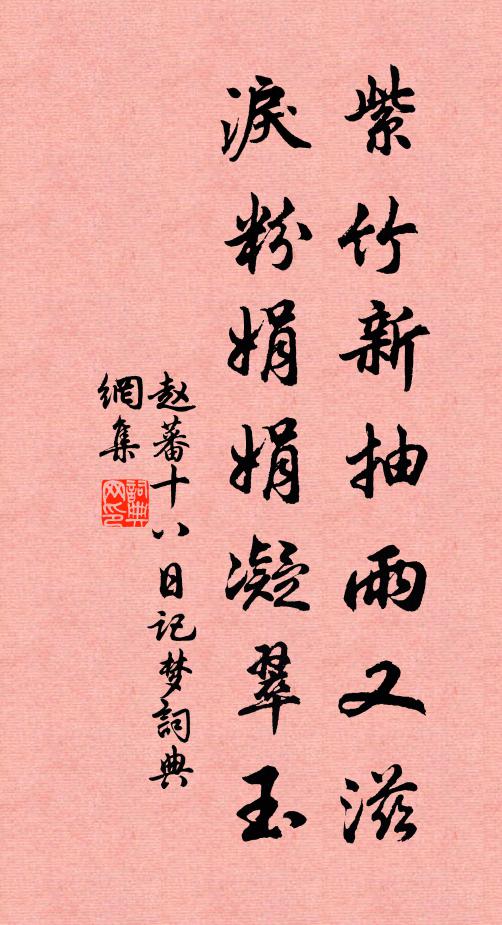 紫竹新抽雨又滋
淚粉娟娟凝翠玉
赵蕃十八日记梦詞典
網集
詞典网印